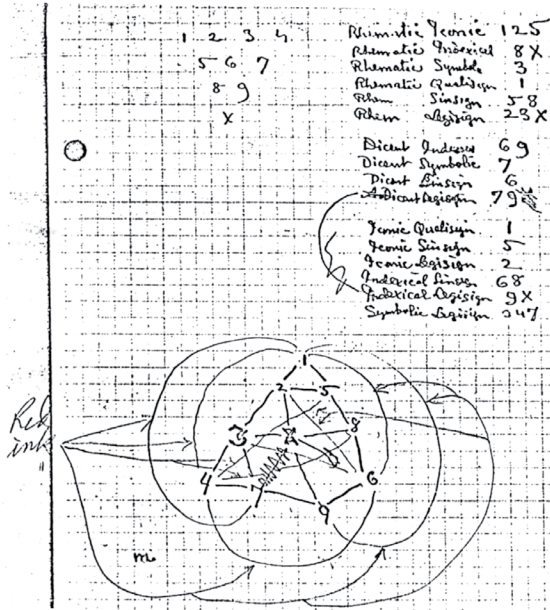 1 2 3 4
5 6 7
8 9
X
Rhematic Iconic 125
Rhematic Indexical 8X
Rhematic Symbol. 3
Rhematic Qualisign 1
Rhem Sinsign 58
Rhem Legisign 23X
Dicent Indexical 69
Dicent Symbolic 7
Dicent Sinsign 6
Dicent Legisign 79
Iconic Qualisign 1
Iconic Sinsign 5
Iconic Legisign 2
Indexical Sinsign 68
Indexical Legisign 9X
Symbolic Legisign 347
Red
ink
1
2 5
3 8
4 7 6
9